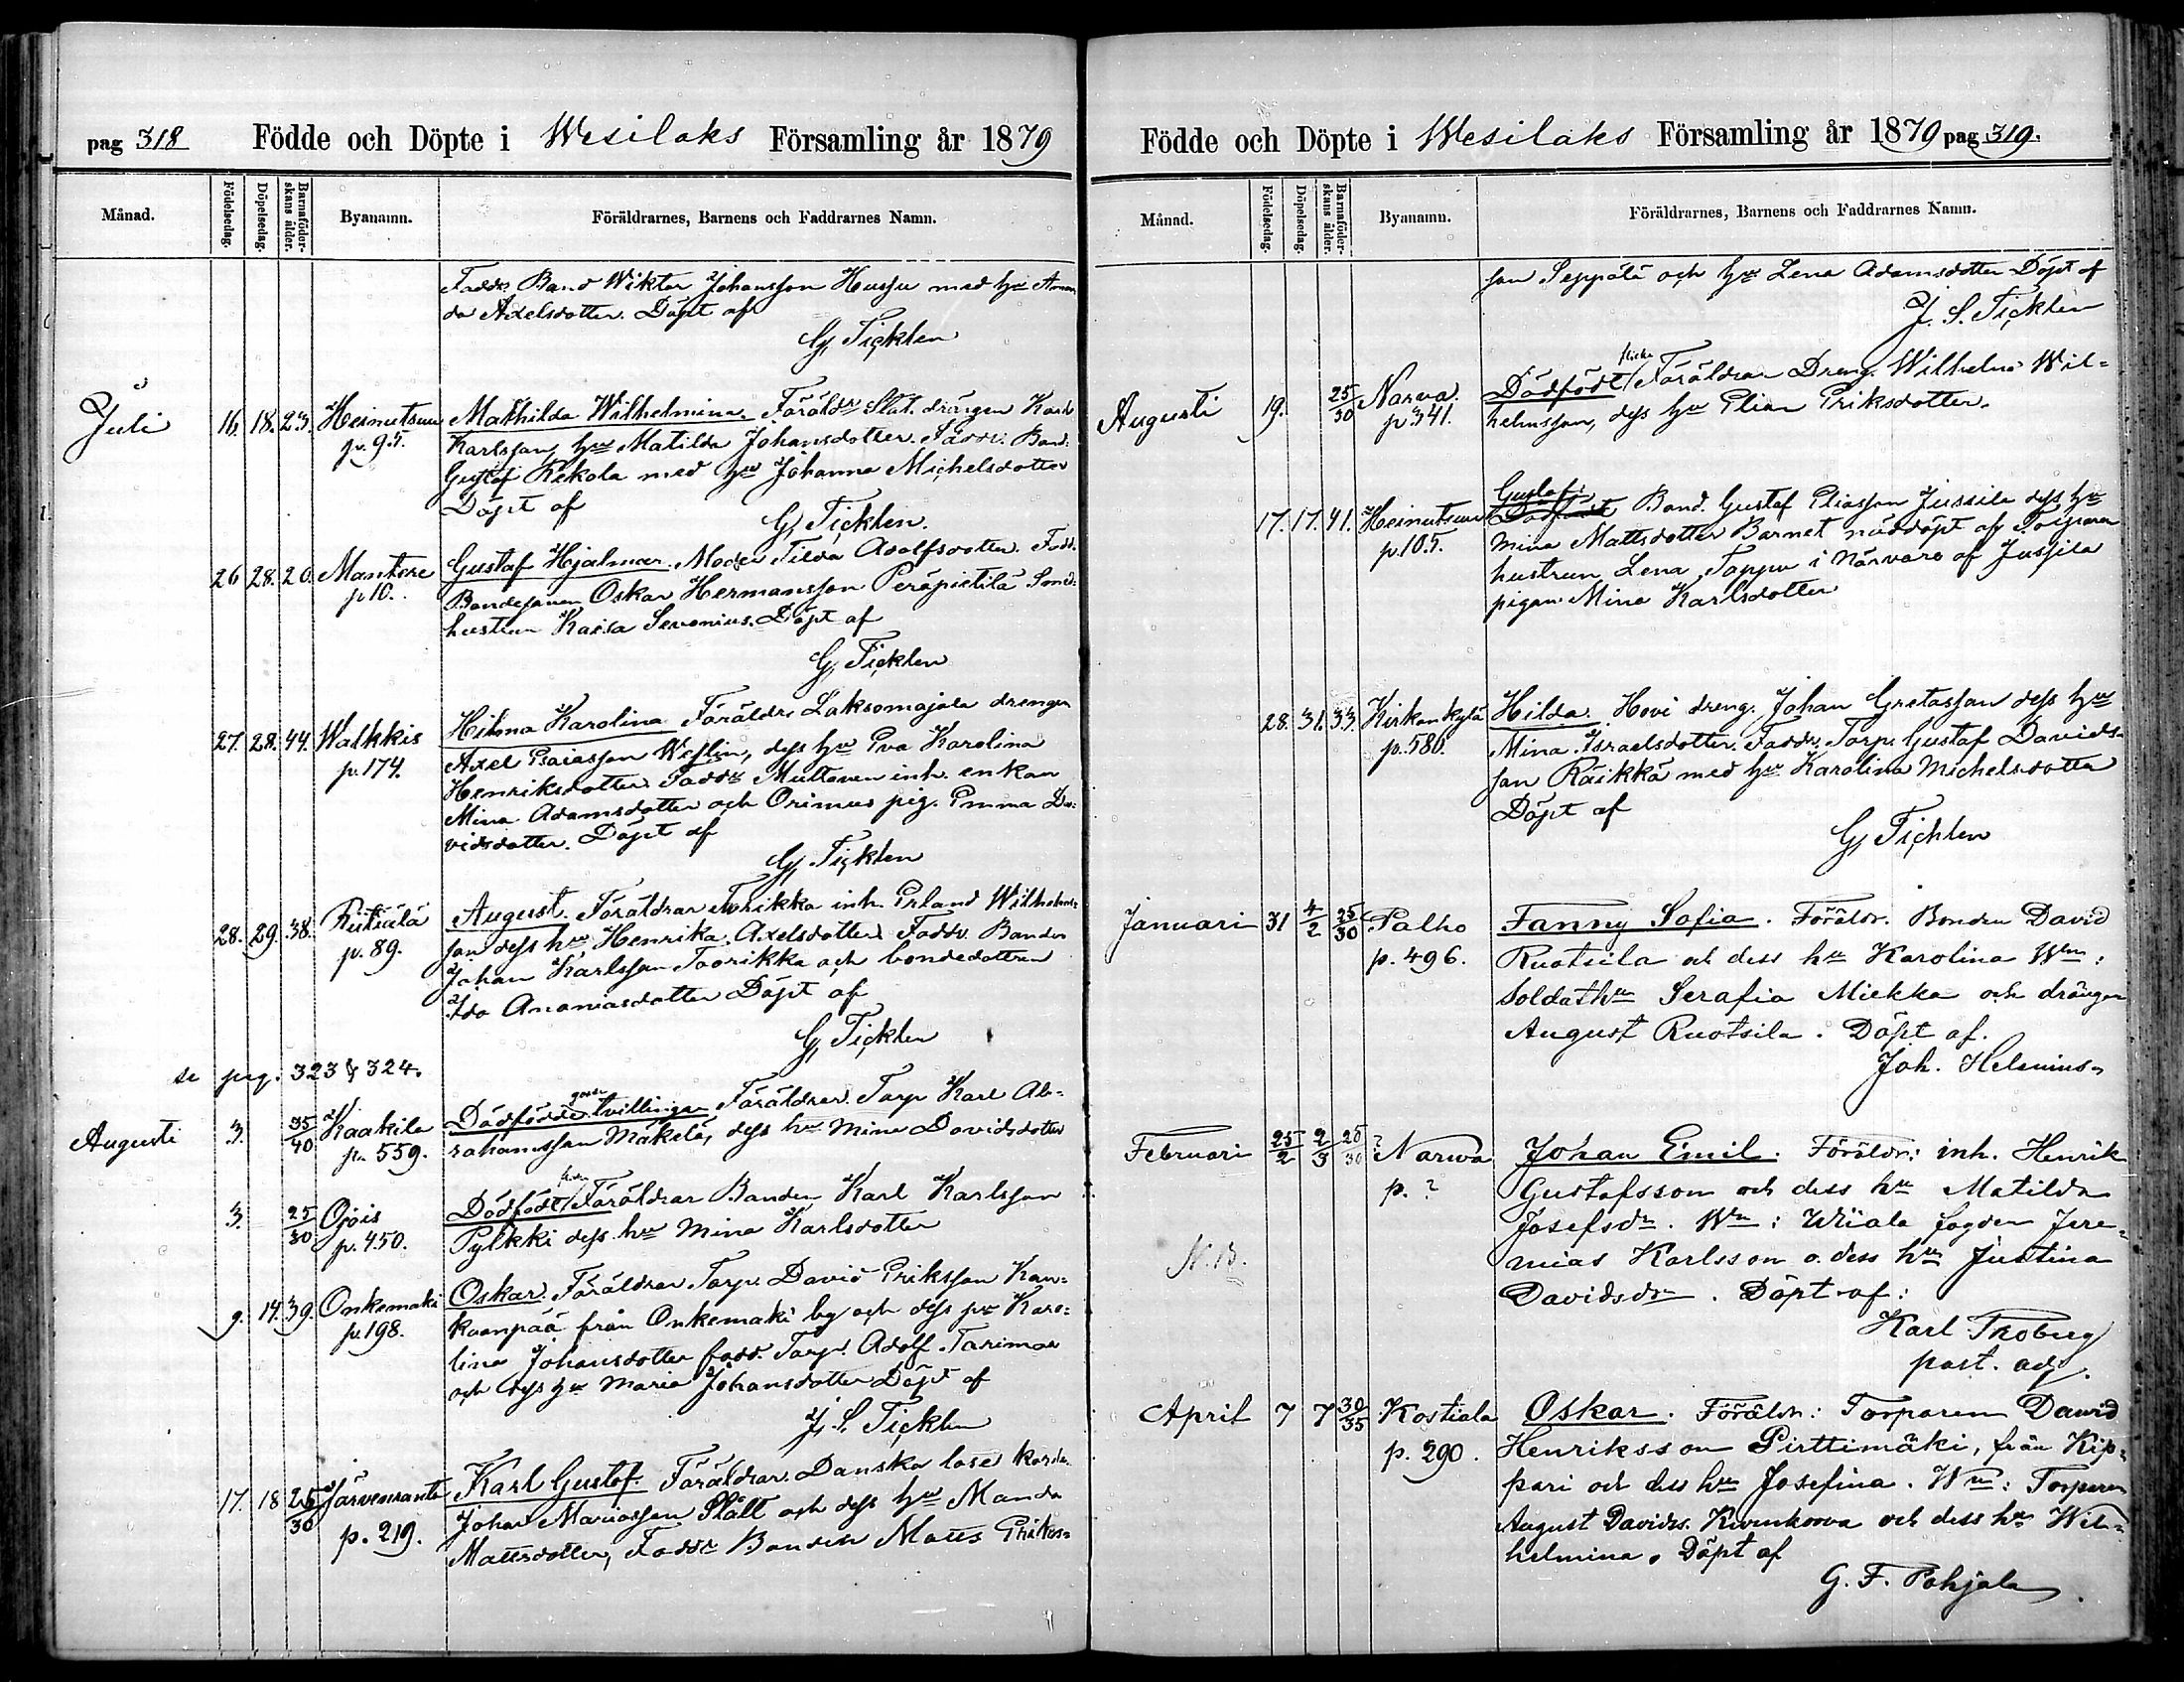 pag 318 Födde och Döpte i Wesilaks Församling år 1879
Månad. Födelsedag. Döpelsedag. Barnaföderskans ålder. Byanamn. Föräldrarnes, Barnens och Faddrarnes Namn.
Faddr. Band Wiktor Johansson Hussu med hu Aman
da Axelsdotter. Döpt af
G, Ticklen
Juli 16. 18. 23. Heinutsuu Mathilda Wilhelmina. Föräldr Stat. drängen Karl
p. 95. Karlsson, hu Matilda Johansdotter. Faddr. Band.
Gustaf Rekola med hu Johanna Michelsdotter
Döpt af
G, Ticklen.
26 28. 20. Mantere Gustaf Hjalmar. Moder Tilda Adolfsdotter. Fadd.
p 10. Bondesonen Oskar Hermansson Peräpietilä Smed.
hustrun Kaisa Sevonius. Döpt af
G, Ticklen
27. 28. 44. Walkkis Hilma Karolina Föräldr. Laksomajala drengen
p. 174. Axel Esaiasson Weslin, dess hu Eva Karolina
Henriksdotter. Faddr Multaven inh. enkan
Mina Adamsdotter och Orimus pig. Emma Da-
vidsdotter. Döpt af
G, Ticklen
28. 29. 38. Riitiälä August. Föräldrar inh. Erland Wilhelms-
p. 89. son dess hu Henrika Axelsdotter Faddr. Banden
Johan Karlsson Toorikka och bondedottren
Ida Ananiasdotter Döpt af
G, Ticklen
se pag. 323 & 324.
Augusti 3. 35/40 Kaakila Dödfödde tvillingar Föräldrar. Torp Karl Ab-
p. 559. rahamsson Mäkelä, dess hu Mina Davidsdotter
3. 25/30 Ojois Dödfödt Föräldrar Banden Karl Karlsson
p. 450. Pylkki dess hu Mina Karlsdotter
9. 14. 39. Onkemäki Oskar. Föräldrar Torp. David Eriksson Kan-
p. 198. kaanpää från Onkemäki by och dess hu Karo-
lina Johansdotter fadd. Torp. Adolf Tarimaa
och dess hu Maria Johansdotter Döpt af
J, S. Ticklen
17. 18 25/30 Järvenranta Karl Gustaf. Föräldrar. Danska lose karlen
p. 219. Johan Mariasson Slätt och dess hu Manda
Mattsdotter, Faddr Banden Matts Eriks-
Födde och Döpte i Wesilaks Församling år 1879 pag 319.
Månad. Födelsedag. Döpelsedag. Barnaföderskans ålder. Byanamn. Föräldrarnes, Barnens och Faddrarnes Namn.
son Seppälä och hu Lena Adamsdotter Döpt af
J. S. Ticklen
flicka
Augusti 19. 25/30 Narva Dödfödt Föräldrar Dreng. Wilhelm Wil-
p 341. helmsson, dess hu Elina Eriksdotter.
Gustafi
17. 17. 41. Heinutsuu Band. Gustaf Eliasson Jussila dess hu
p. 105. Mina Mattsdotter Barnet nöddöpt af Torpare
hustrun Lena Tappu i närvaro af Jussila
pigan Mina Karlsdotter
28. 31. 33. Kirkonkylä Hilda. Hovi dreng. Johan Gretasson dess hu
p. 580. Mina Israelsdotter. Faddr. Torp. Gustaf Davids-
son Räikkä med hu Karolina Michelsdotter
Döpt af
G, Ticklen
Januari 31 4/2 25/30 Palho Fanny Sofia. Föräldr. Bonden David
p. 496. Ruotsila och dess hu Karolina Wn:
Soldathu Serafia Miekka och drängen
August Ruotsila. Döpt af.
Joh. Helenius.
Februari 25/2 2/3 25/30 ? Narwa Johan Emil. Föräldr: inh. Henrik
p. ? Gustafsson och dess hu Matilda
Josefsdr. Wn: Wiiala fogden Jere-
N.B. mias Karlsson o. dess hu Justina
Davidsdr. Döpt af:
Karl Froberg
past. adj.
April 7 7 30/35 Kostiala Oskar. Föräldr: Torparen David
p. 290. Henriksson Pirttimäki, från Kip-
pari och dess hu Josefina. Wn: Torparen
August Davidss. Kivenkorva och dess hu Wil-
helmina. Döpt af
G. F. Pohjala